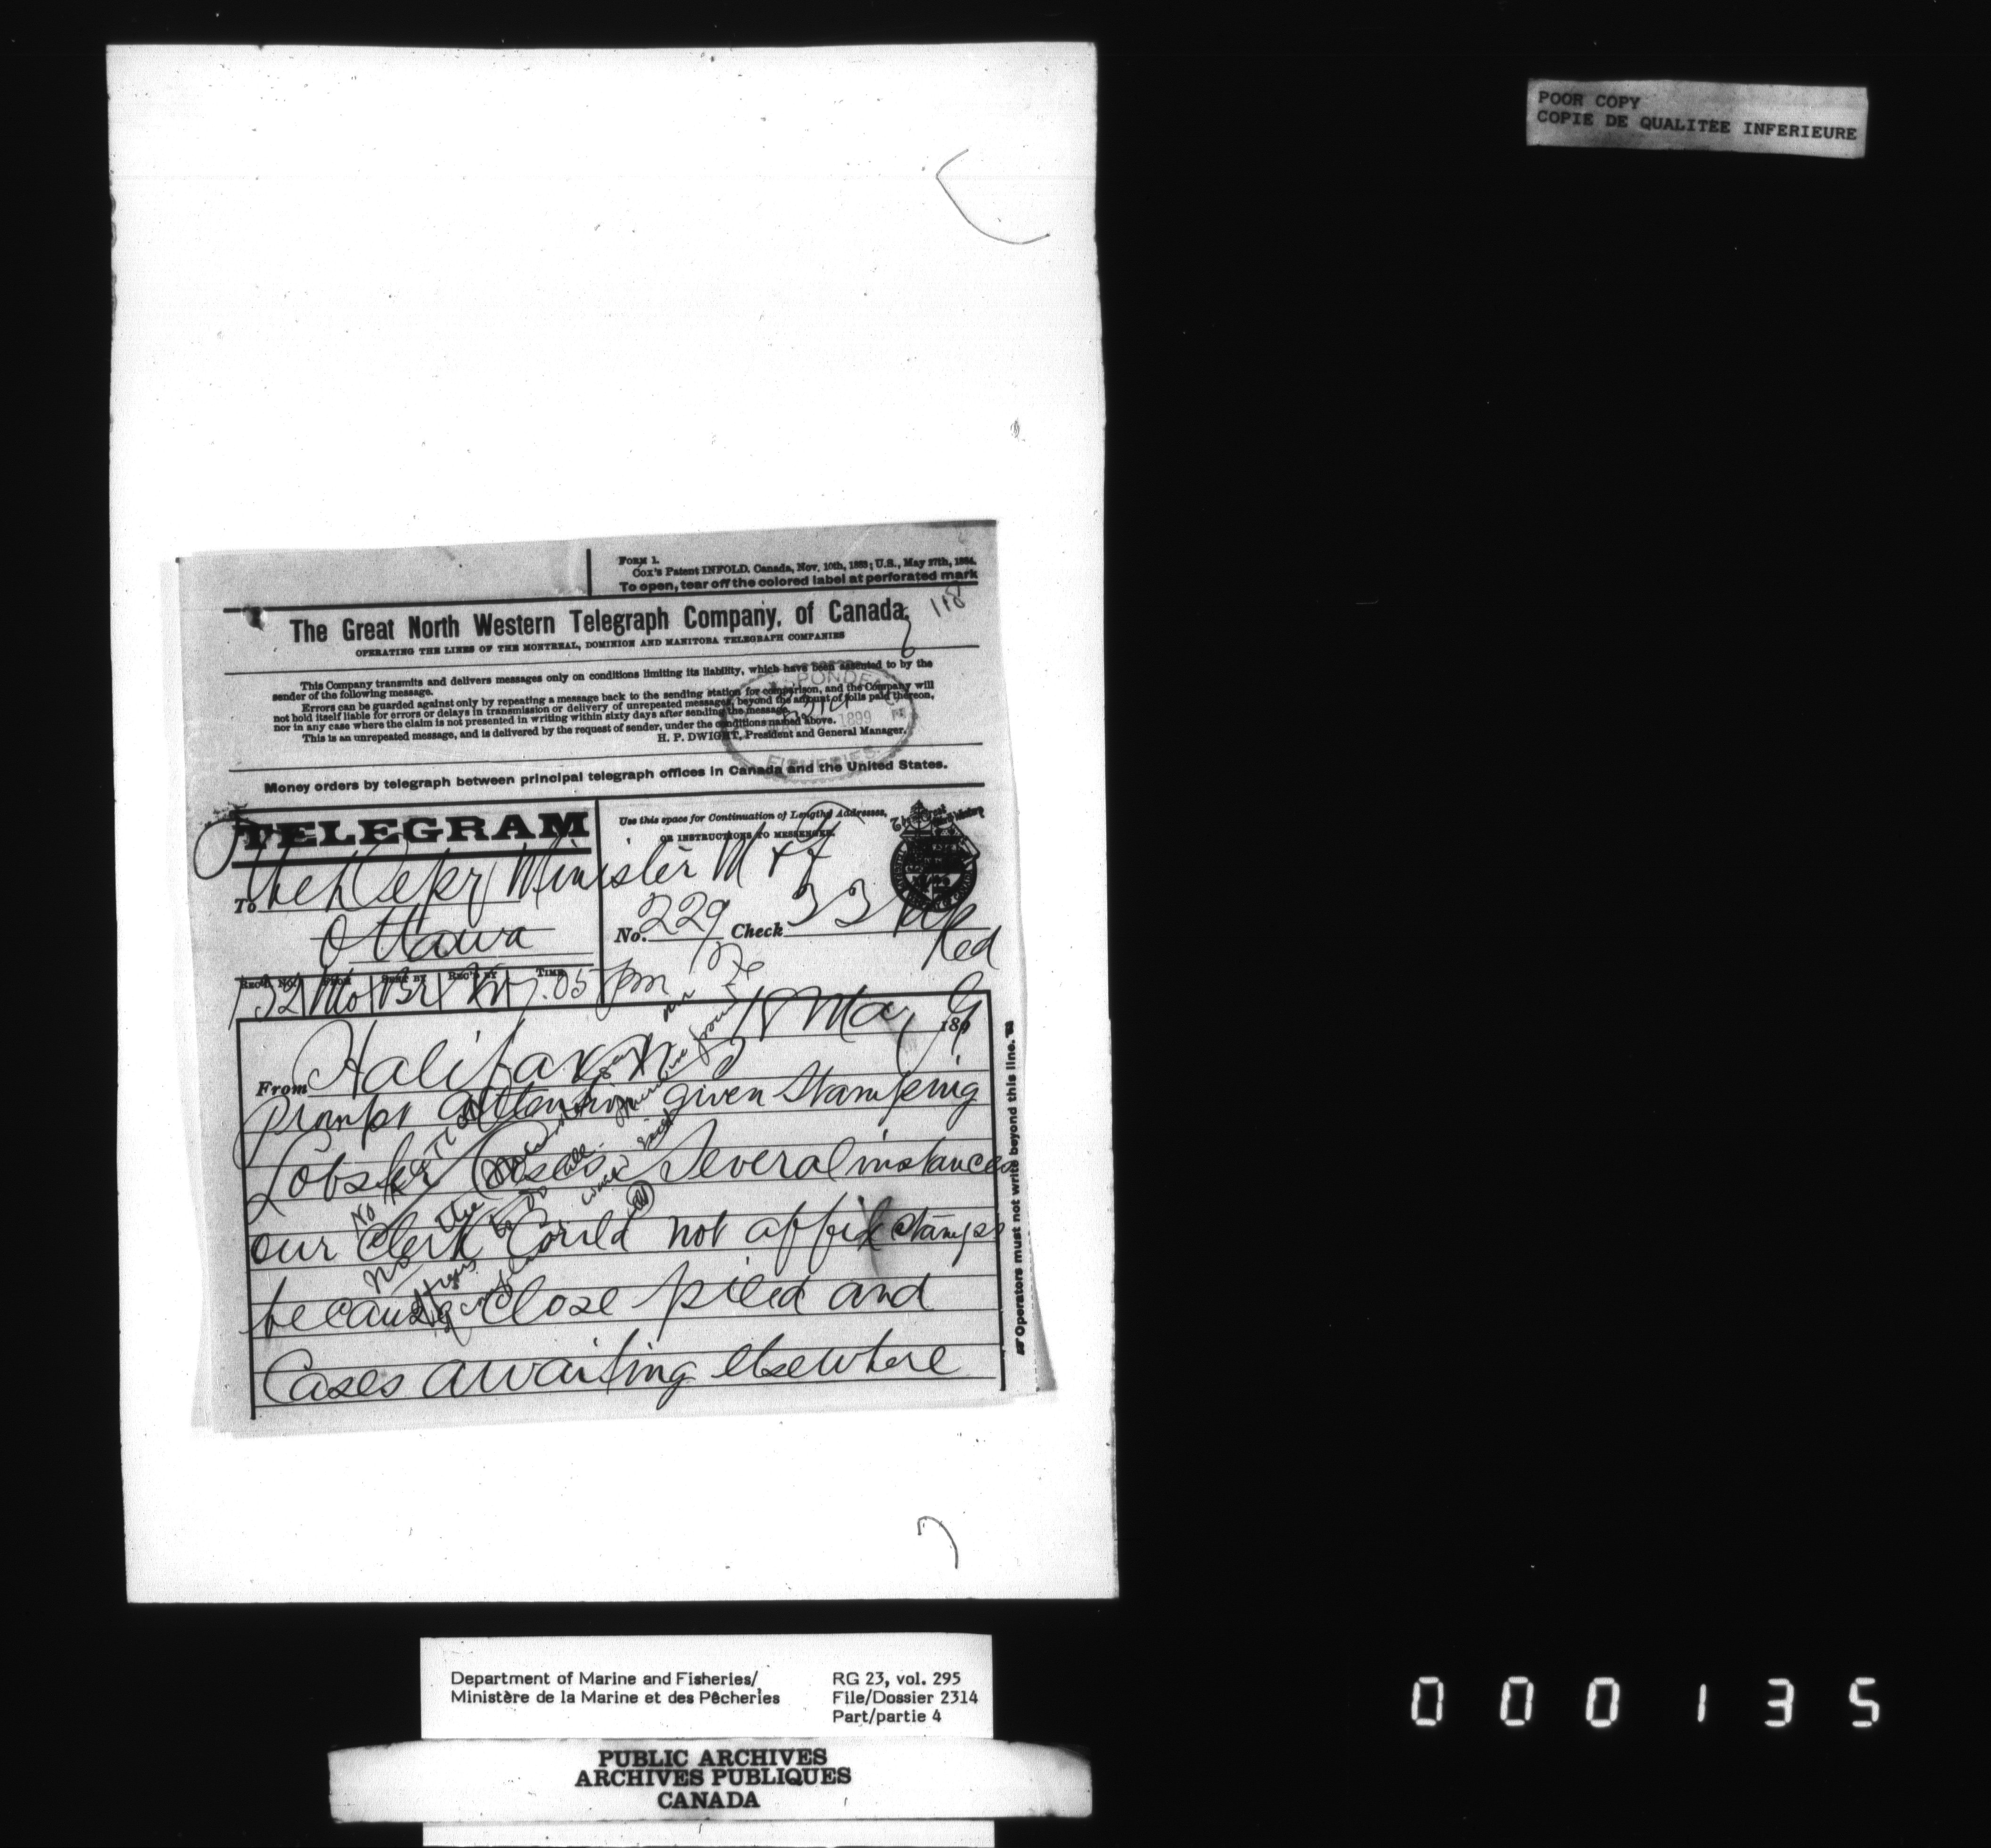 POOR COPY
COPIE DE QUALITEE INFERIEURE
FORM 1.
Cox's Patent INFOLD. Canada, Nov. 10th, 1883; U.S., May 27th, 1884.
To open, tear off the colored label at perforated mark
118
The Great North Western Telegraph Company, of Canada.
OPERATING THE LINES OF THE MONTREAL, DOMINION AND MANITOBA TELEGRAPH COMPANIES
This Company transmits and delivers messages only on conditions limiting its liability, which have been assented to by the
sender of the following message.
Errors can be guarded against only by repeating a message back to the sending station for comparison, and the Company will
not hold itself liable for errors or delays in transmission or delivery of unrepeated messages, beyond the amount of tolls paid thereon,
nor in any case where the claim is not presented in writing within sixty days after sending the message.
This is an unrepeated message, and is delivered by the request of sender, under the conditions named above.
H. P. DWIGHT, President and General Manager.
1899
FISHERIES
Money orders by telegraph between principal telegraph offices in Canada and the United States.
TELEGRAM
Use this space for Continuation of Lengthy Addresses,
OR INSTRUCTIONS TO MESSENGER.
To The Depy Minister M & F
Ottawa
No. 229 Check 33
REC'D No. FROM SENT BY REC'D BY TIME
132 Mo Br 7.05 pm
18 May 1899
From Halifax N S
Prompt attention given Stamping
Lobster Cases. Several instances
our Clerk Could not affix stamps
because close piled and
Cases awaiting elsewhere
Operators must not write beyond this line.
Department of Marine and Fisheries/
Ministère de la Marine et des Pêcheries
RG 23, vol. 295
File/Dossier 2314
Part/partie 4
PUBLIC ARCHIVES
ARCHIVES PUBLIQUES
CANADA
000135